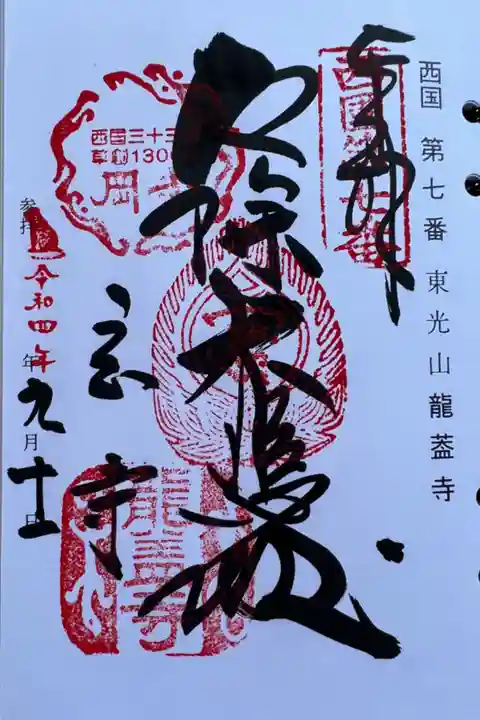 西国 第七番 東光山 龍蓋寺
奉拝
西国第七番
厄除大悲殿
西国三十三
草創130
岡寺
龍蓋寺
参拝
令和四年
年九月十一日